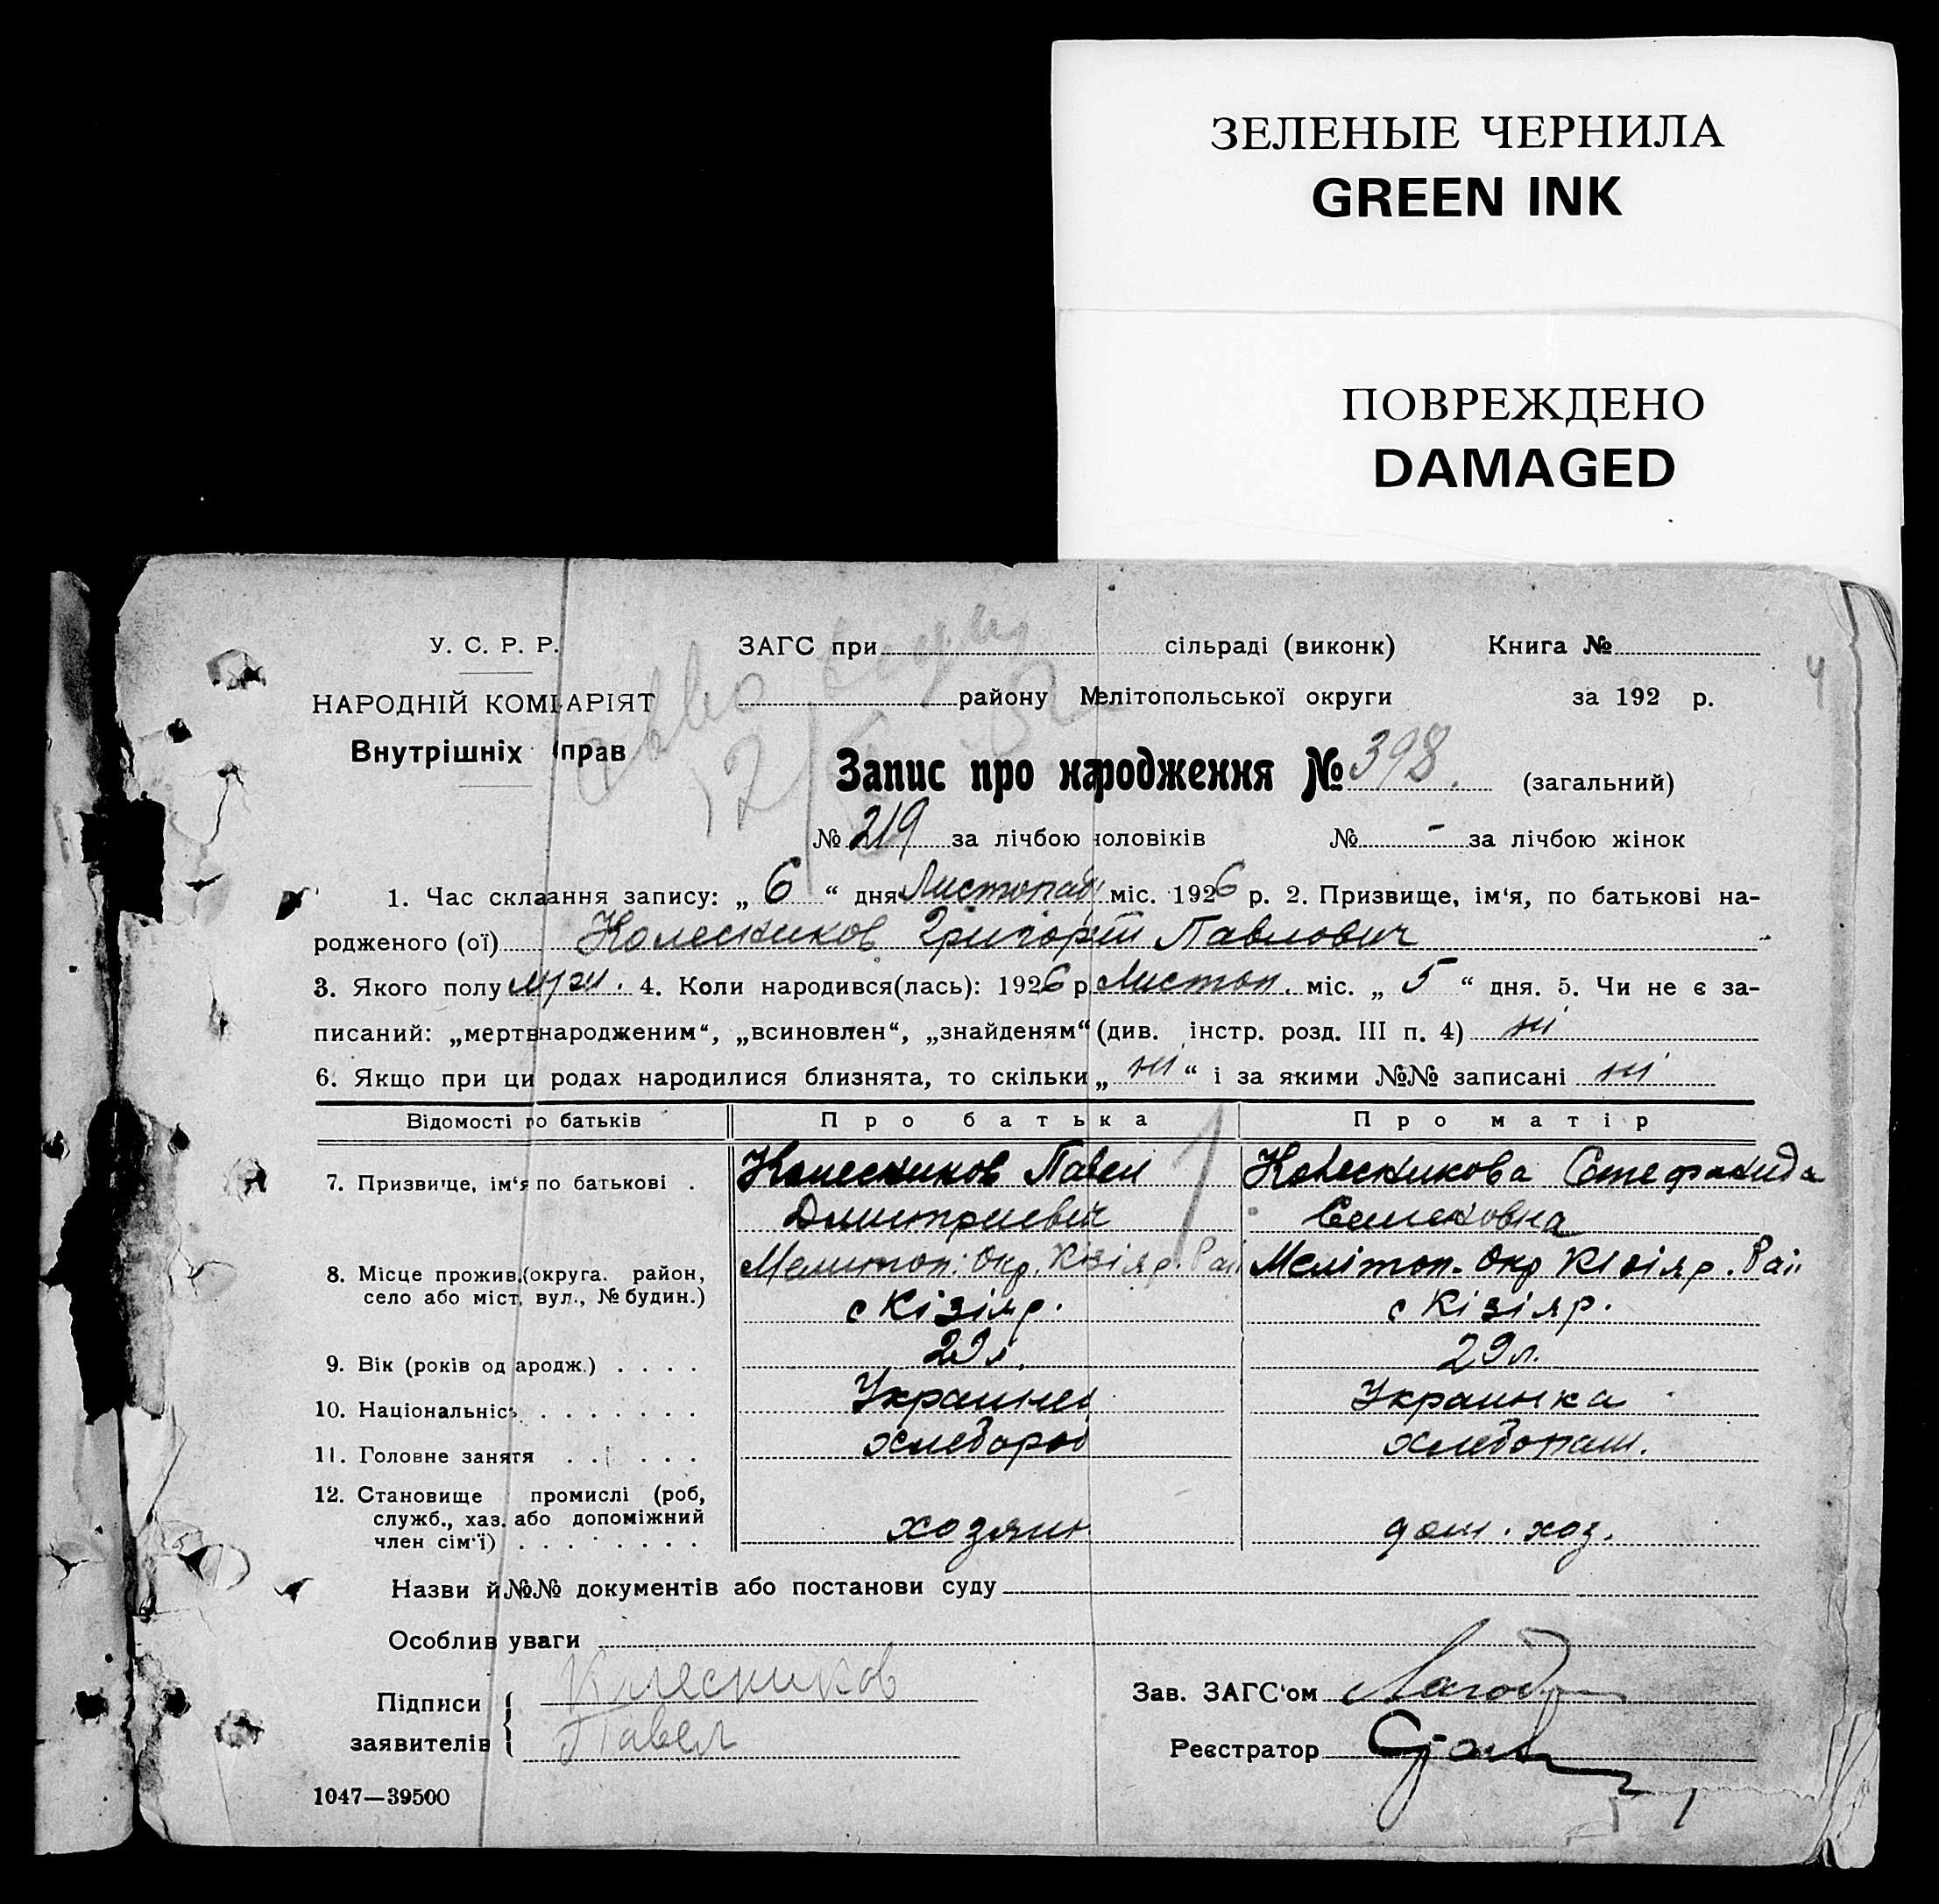 ЗЕЛЕНЫЕ ЧЕРНИЛА
GREEN INK
ПОВРЕЖДЕНО
DAMAGED
У. С. Р. Р. ЗАГС при сільраді (виконк) Книга №
4
НАРОДНІЙ КОМІАРІЯТ району Мелітопольської округи за 192 р.
Внутрішніх прав
Запис про народження № 398. (загальний)
№ 219 за лічбою чоловіків № - за лічбою жінок
1. Час склаання запису: „ 6 “ дня Листопад міс. 1926 р. 2. Призвище, ім'я, по батькові на-
родженого (ої) Колесников Григорій Павлович
3. Якого полу муж. 4. Коли народився(лась): 1926 р Листоп. міс. „ 5 “ дня. 5. Чи не є за-
писаний: „мертвнародженим“, „всиновлен“, „знайденям“ (див. інстр. розд. III п. 4) ні
6. Якщо при ци родах народилися близнята, то скільки „ ні “ і за якими №№ записані ні
Відомості ро батьків Про батька Про матір
7. Призвище, ім'я по батькові . Колесников Павел Колесникова Стефанида
Дмитриевич Семеновна
8. Місце прожив.(округа. район, Мелитоп. Окр. Кізіяр. Рай Мелітоп. Окр Кізіяр. Рай
село або міст, вул., № будин.) с Кізіяр. с Кізіяр.
9. Вік (років од ародж.) . . . . 29 л. 29 л.
10. Національніс . . . . . . . Украинец Украинка
11. Головне занятя . . . . . хлебороб хлебопаш.
12. Становище промислі (роб,
служб., хаз. або допоміжний хозяин дом. хоз.
член сім'ї) . . . . . . . .
Назви й №№ документів або постанови суду
Особлив уваги
Підписи Колесников Зав. ЗАГС'ом
заявителів Павел Реєстратор
1047—39500